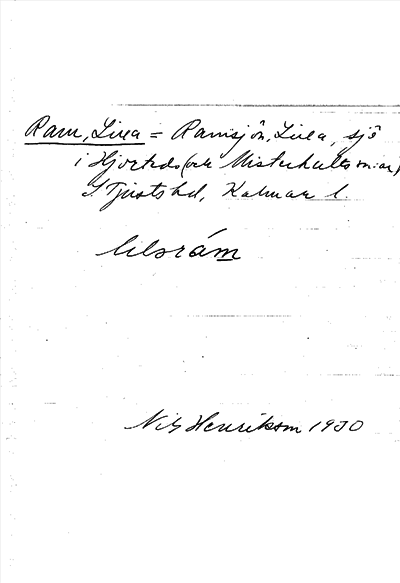 Ram, Lilla = Ramsjön, Lilla, sjö
i Hjorteds (och Misterhults snar)
S. Tjusts hd, Kalmar l.
lilsrám
Nils Henrikson 1930